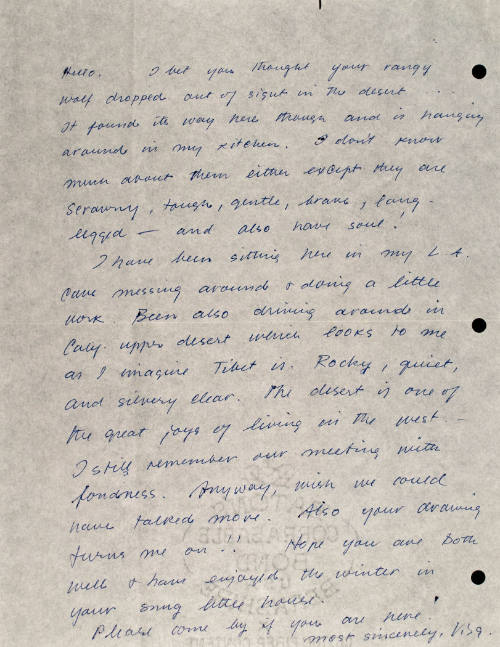 Hello. I bet you thought your rangy
wolf dropped out of sight in the desert . . .
It found its way here though and is hanging
around in my kitchen. I don't know
much about them either except they are
scrawny, tough, gentle, brave, long-
legged — and also have soul!
I have been sitting here in my L.A.
cave messing around & doing a little
work. Been also driving around in
Caly. upper desert which looks to me
as I imagine Tibet is. Rocky, quiet,
and silvery clear. The desert is one of
the great joys of living in the west —
I still remember our meeting with
fondness. Anyway, wish we could
have talked more. Also your drawing
turns me on!! Hope you are both
well & have enjoyed the winter in
your snug little house.
Please come by if you are here!
most sincerely, Vija